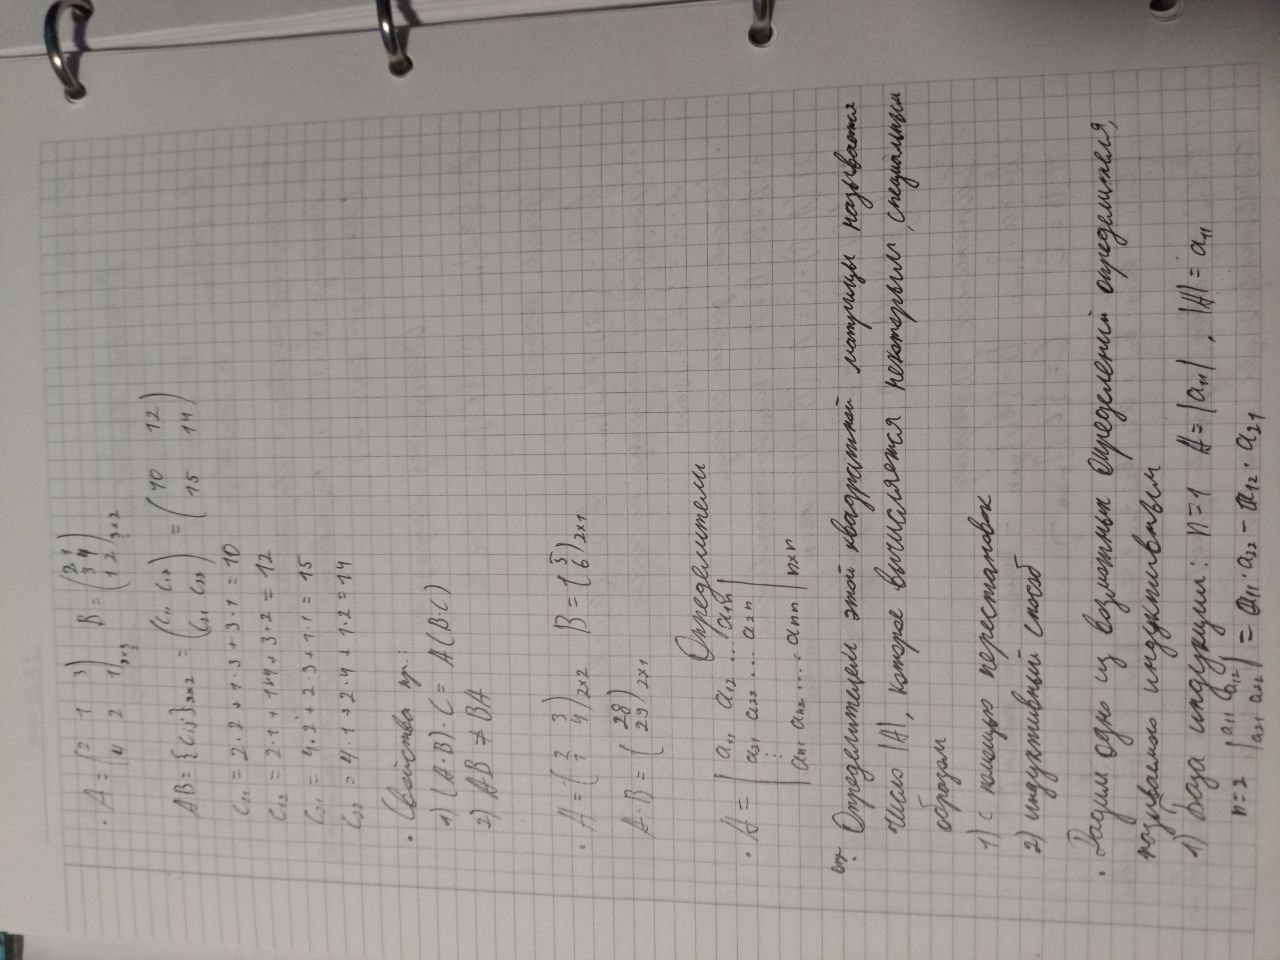 · A = (2 1 3 / 4 2 1)₂ₓ₃ B = (2 1 / 3 4 / 1 2)₃ₓ₂
AB = {Cij}₂ₓ₂ = (C₁₁ C₁₂ / C₂₁ C₂₂) = (10 12 / 15 14)
C₁₁ = 2·2 + 1·3 + 3·1 = 10
C₁₂ = 2·1 + 1·4 + 3·2 = 12
C₂₁ = 4·2 + 2·3 + 1·1 = 15
C₂₂ = 4·1 + 2·4 + 1·2 = 14
· Свойства пр.:
1) (A·B)·C = A(B·C)
2) AB ≠ BA
· A = (2 3 / 1 4)₂ₓ₂ B = (5 / 6)₂ₓ₁
A·B = (28 / 29)₂ₓ₁
Определители
· A = | a₁₁ a₁₂ ... a₁n |
a₂₁ a₂₂ .... a₂n
⋮
an₁ an₂ ..... ann | n×n
оп: Определителем этой квадратной матрицы называется
число |A|, которое вычисляется некоторым специальным
образом
1) с помощью перестановок
2) индуктивный способ
· Дадим одно из возможных определений определителя,
называемо индуктивным
1) База индукции: n=1 A=|a₁₁|, |A|=a₁₁
n=2 | a₁₁ a₁₂ / a₂₁ a₂₂ | = a₁₁·a₂₂ - a₁₂·a₂₁